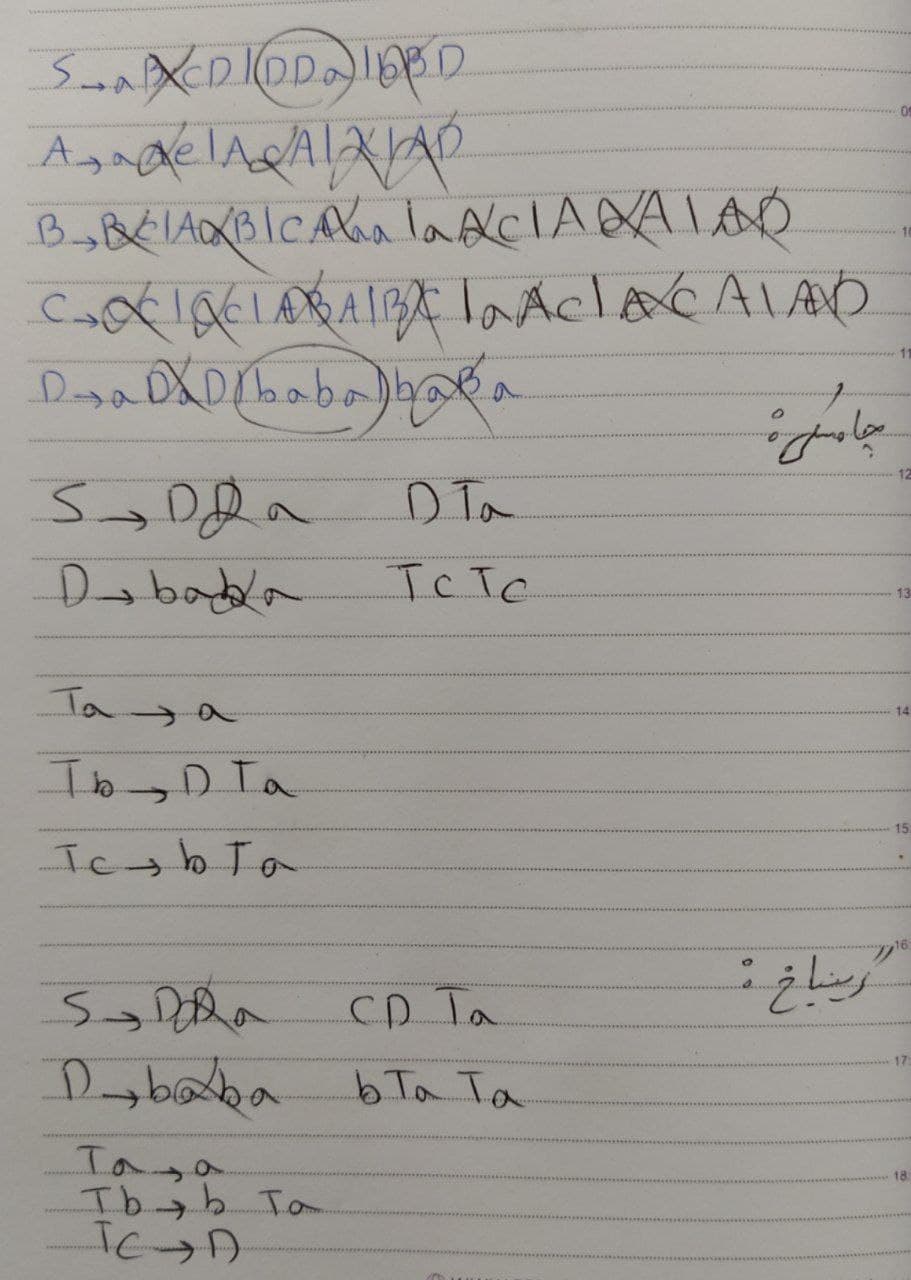 S → aBCD | DDa | bBD
A → aAe | AcA | λ | AD
B → BC | AaB | CAaa | aAc | AcA | AD
C → CC | aC | ABA | BC | aAc | AcA | AD
D → aDaD | baba | baBa
چامسکی:
S → DDa DTa
D → baba TcTc
Ta → a
Tb → DTa
Tc → bTa
گریباخ:
S → DDa CDTa
D → baba bTaTa
Ta → a
Tb → b Ta
Tc → D
09
10
11
12
13
14
15
16
17
18